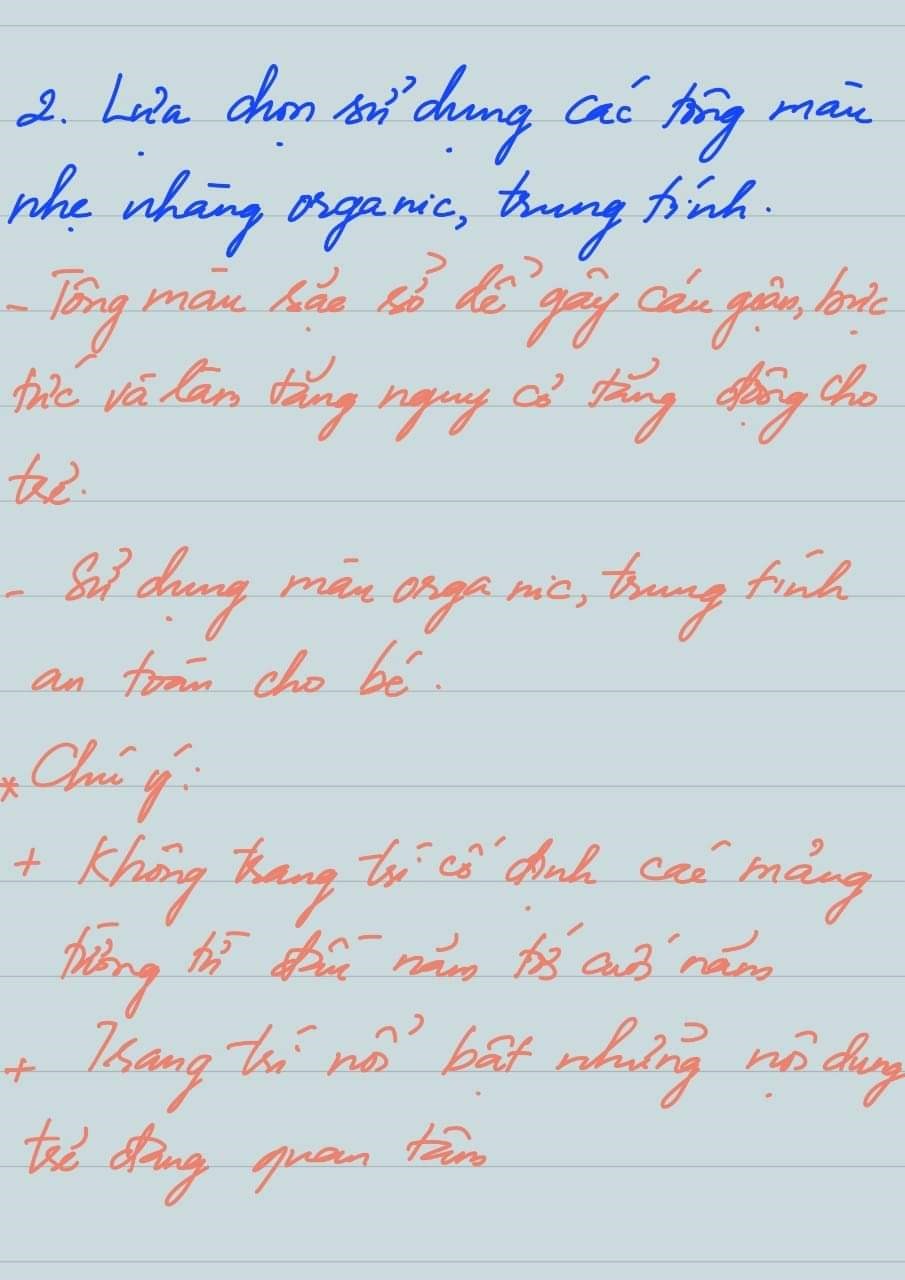 2. Lựa chọn sử dụng các tông màu
nhẹ nhàng organic, trung tính.
- Tông màu sặc sỡ dễ gây cáu giận, bực
tức và làm tăng nguy cơ tăng động cho
trẻ.
- Sử dụng màu organic, trung tính
an toàn cho bé.
* Chú ý:
+ Không trang trí cố định các mảng
tường từ đầu năm tới cuối năm
+ Trang trí nổi bật những nội dung
trẻ đang quan tâm